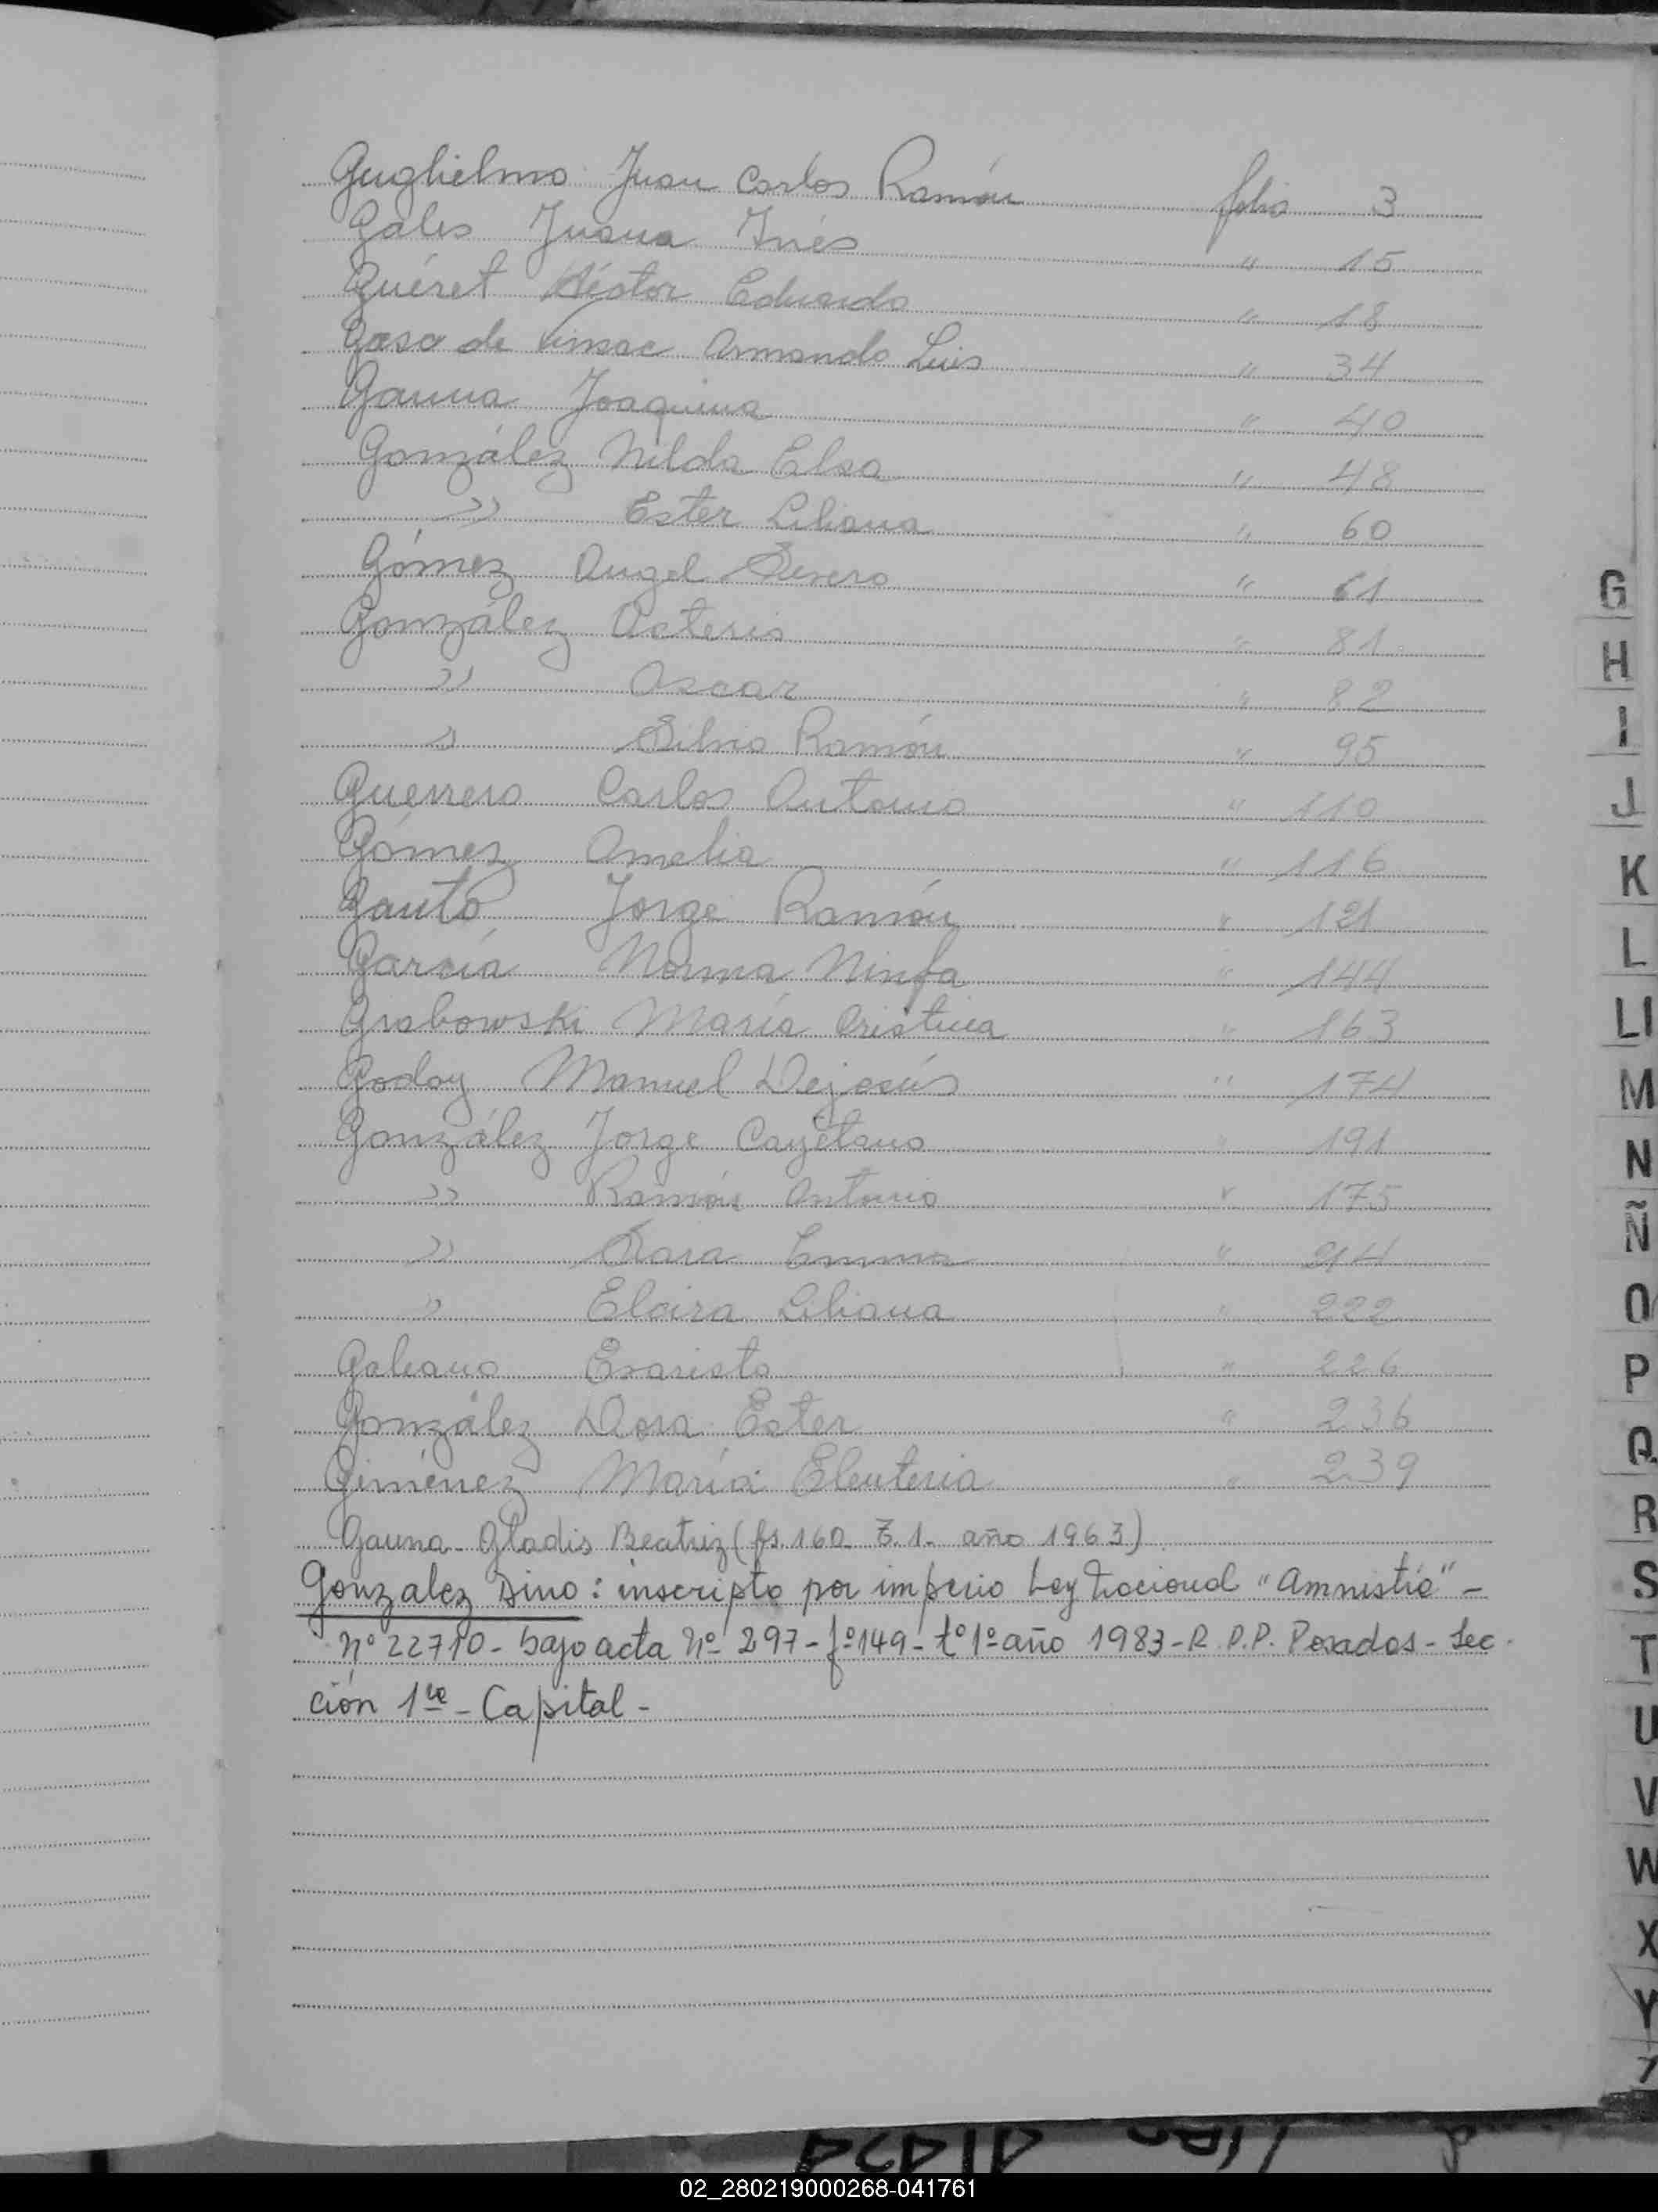 Guglielmo Juan Carlos Ramón folio 3
Gales Juana Inés " 15
Guéret Héctor Eduardo " 18
Gasa de Armando Luis " 34
Gauna Joaquina " 40
González Nilda Elsa " 48
" Ester Liliana " 60
Gómez Angel Severo " 61
González Asterio " 81
" Oscar " 82
" Silvio Ramón " 95
Guerrero Carlos Antonio " 110
Gómez Amelia " 116
Gauto Jorge Ramón " 121
García Norma Ninfa " 144
Grabowski María Cristina " 163
Godoy Manuel Dejesús " 174
González Jorge Cayetano " 191
" Ramón Antonio " 175
" Sara Emma " 214
" Elvira Liliana " 222
Galeano Evaristo " 226
González Dora Ester " 236
Giménez María Eleuteria " 239
Gauna - Gladis Beatriz (fs. 160 - T. 1 - año 1963)
Gonzalez Dino : inscripto por imperio Ley Nacional "Amnistía" -
Nº 22710 - bajo acta Nº 297 - fº 149 - tº 1º año 1983 - R.P.P. Posadas - Sec
ción 1ra - Capital -
G
H
I
J
K
L
Ll
M
N
Ñ
O
P
Q
R
S
T
U
V
W
X
Y
Z
02_280219000268-041761